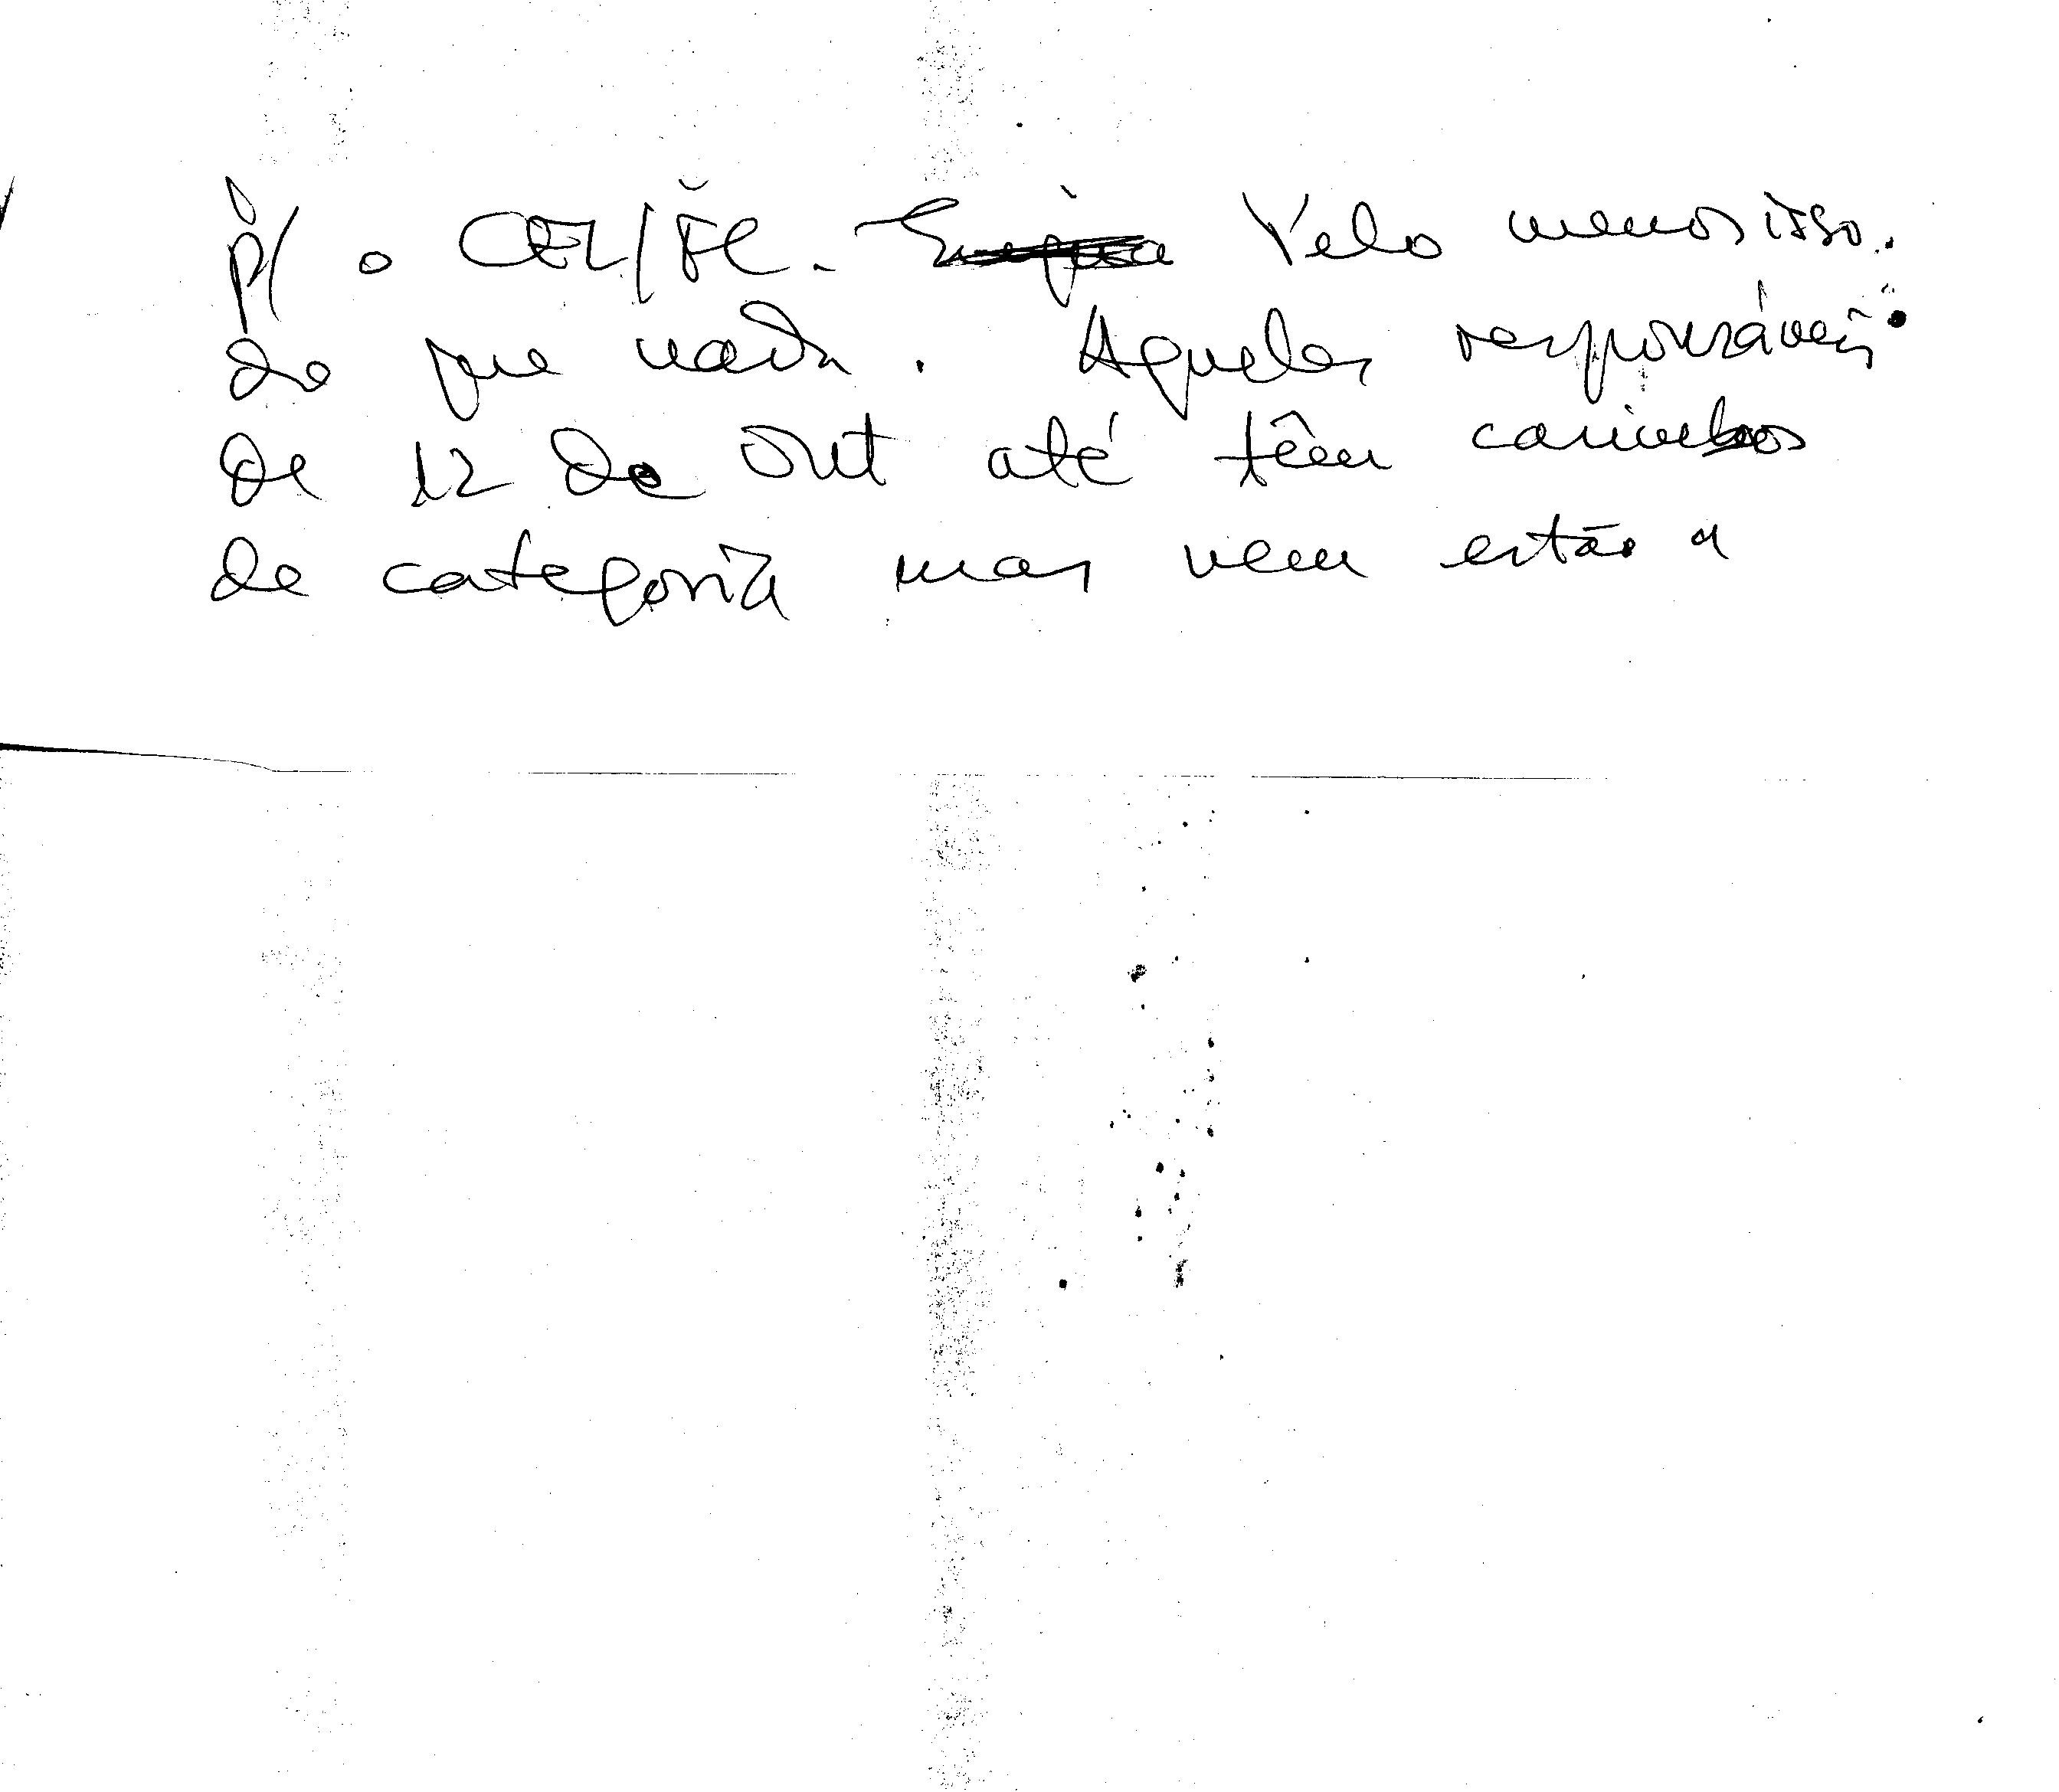 p/ o CEL/FC. Pelo menos isso.
do que nada. Aqueles responsáveis
de 12 de Out até têm carimbos
de categoria mas nem estão a